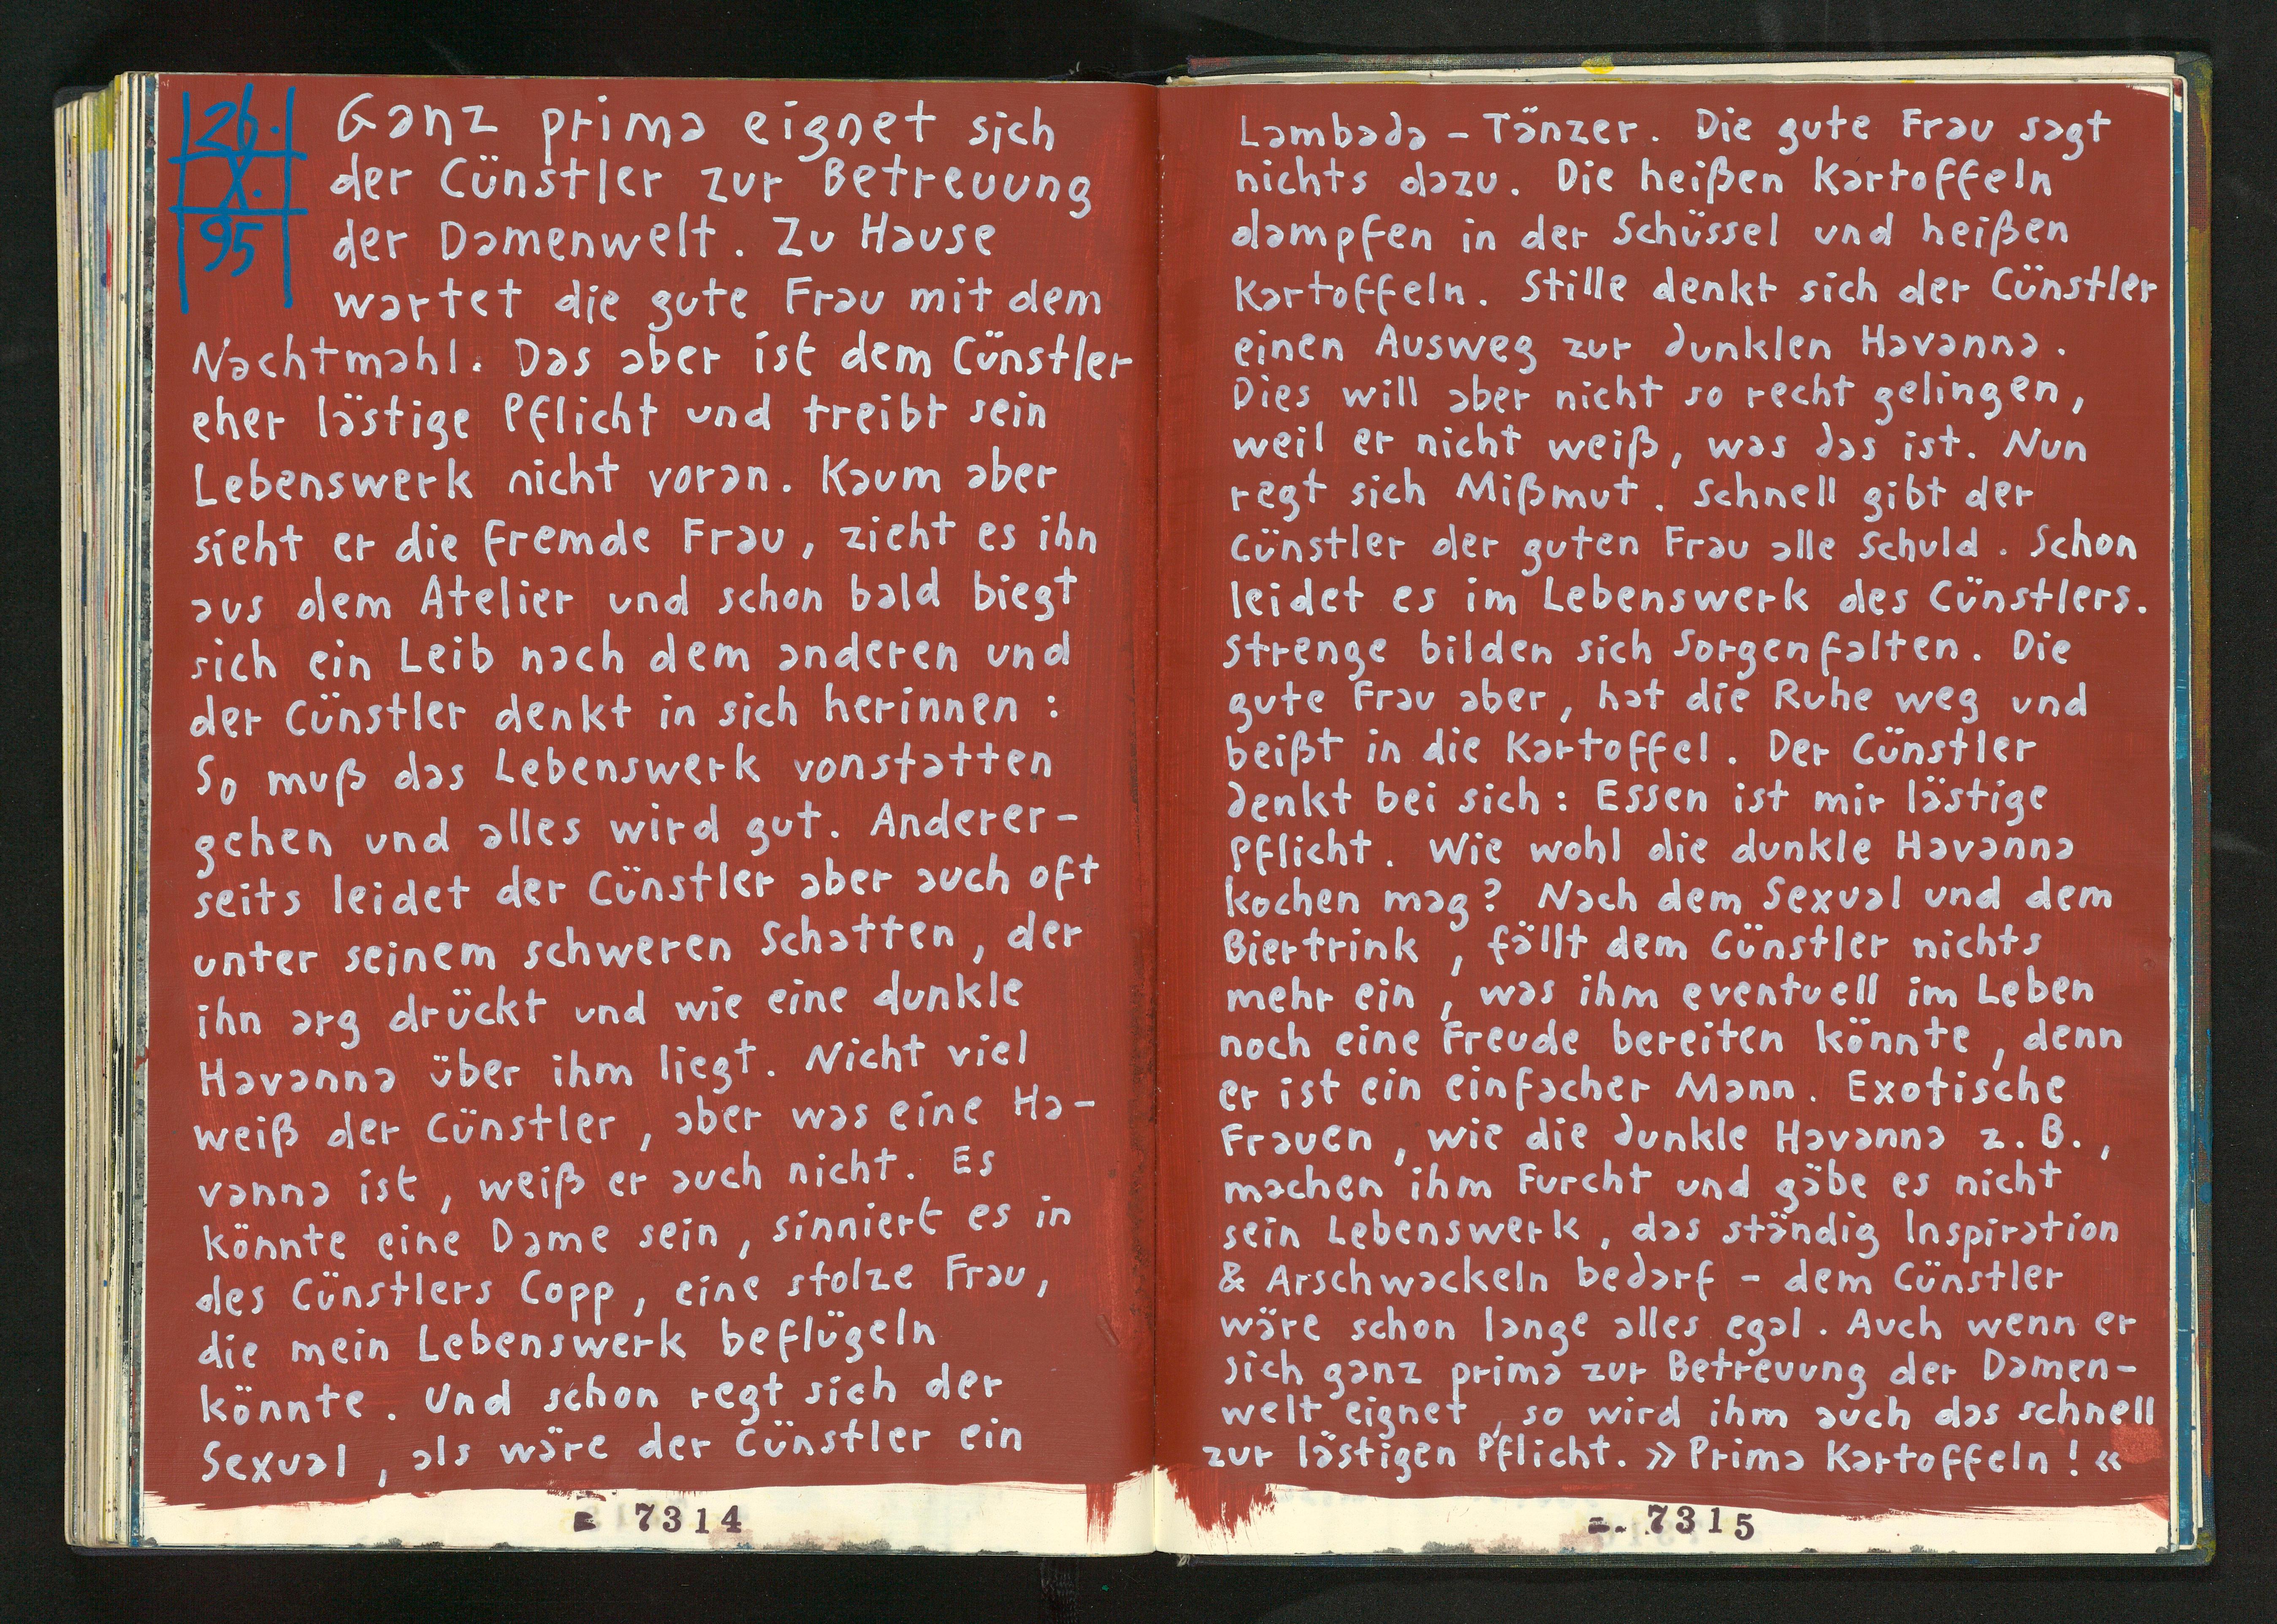 26.
X.
95
Ganz prima eignet sich
der Cünstler zur Betreuung
der Damenwelt. Zu Hause
wartet die gute Frau mit dem
Nachtmahl. Das aber ist dem Cünstler
eher lästige Pflicht und treibt sein
Lebenswerk nicht voran. Kaum aber
sieht er die fremde Frau, zieht es ihn
aus dem Atelier und schon bald biegt
sich ein Leib nach dem anderen und
der Cünstler denkt in sich herinnen:
So muß das Lebenswerk vonstatten
gehen und alles wird gut. Anderer-
seits leidet der Cünstler aber auch oft
unter seinem schweren Schatten, der
ihn arg drückt und wie eine dunkle
Havanna über ihm liegt. Nicht viel
weiß der Cünstler, aber was eine Ha-
vanna ist, weiß er auch nicht. Es
könnte eine Dame sein, sinniert es in
des Cünstlers Copp, eine stolze Frau,
die mein Lebenswerk beflügeln
könnte. Und schon regt sich der
Sexual, als wäre der Cünstler ein
7314
Lambada-Tänzer. Die gute Frau sagt
nichts dazu. Die heißen Kartoffeln
dampfen in der Schüssel und heißen
Kartoffeln. Stille denkt sich der Cünstler
einen Ausweg zur dunklen Havanna.
Dies will aber nicht so recht gelingen,
weil er nicht weiß, was das ist. Nun
regt sich Mißmut. Schnell gibt der
Cünstler der guten Frau alle Schuld. Schon
leidet es im Lebenswerk des Cünstlers.
Strenge bilden sich Sorgenfalten. Die
gute Frau aber, hat die Ruhe weg und
beißt in die Kartoffel. Der Cünstler
denkt bei sich: Essen ist mir lästige
Pflicht. Wie wohl die dunkle Havanna
kochen mag? Nach dem Sexual und dem
Biertrink, fällt dem Cünstler nichts
mehr ein, was ihm eventuell im Leben
noch eine Freude bereiten könnte, denn
er ist ein einfacher Mann. Exotische
Frauen, wie die dunkle Havanna z.B.,
machen ihm Furcht und gäbe es nicht
sein Lebenswerk, das ständig Inspiration
& Arschwackeln bedarf - dem Cünstler
wäre schon lange alles egal. Auch wenn er
sich ganz prima zur Betreuung der Damen-
welt eignet, so wird ihm auch das schnell
zur lästigen Pflicht. »Prima Kartoffeln!«
7315